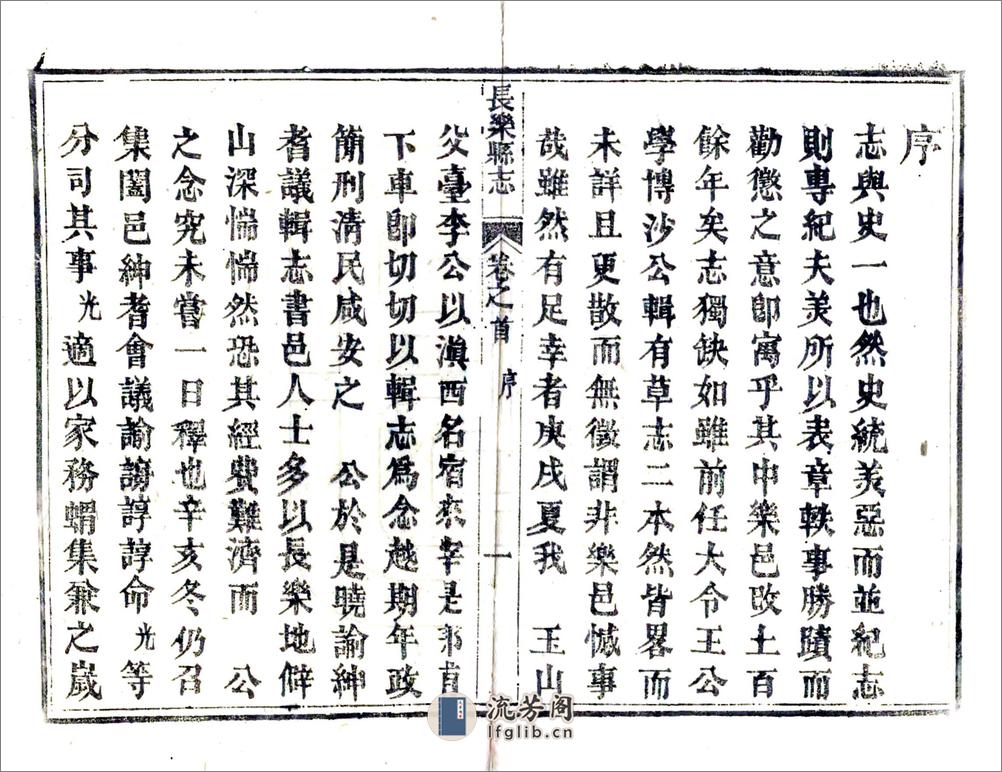 序
志與史一也然史統美惡而並紀志
則專紀夫美所以表章軼事勝蹟而
勸懲之意卽寓乎其中樂邑改土百
餘年矣志獨缺如雖前任大令王公
學博沙公輯有草志二本然皆畧而
未詳且更散而無徵謂非樂邑憾事
哉雖然有足幸者庚戌夏我 玉山
長樂縣志 卷之首 序 一
父臺李公以滇西名宿來宰是邦甫
下車卽切切以輯志爲念越期年政
簡刑清民咸安之 公於是曉諭紳
耆議輯志書邑人士多以長樂地僻
山深惴惴然恐其經費難濟而 公
之念究未嘗一日釋也辛亥冬仍召
集闔邑紳耆會議諭諄諄命光等
分司其事光適以家務蝟集兼之歲
流芳阁
lfglib.cn